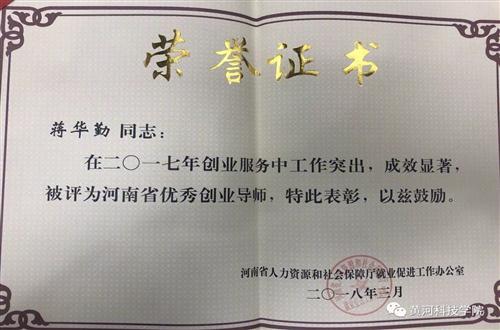 荣誉证书
蒋华勤 同志：
在二〇一七年创业服务中工作突出，成效显著，
被评为河南省优秀创业导师，特此表彰，以兹鼓励。
河南省人力资源和社会保障厅就业促进工作办公室
二〇一八年三月
黄河科技学院